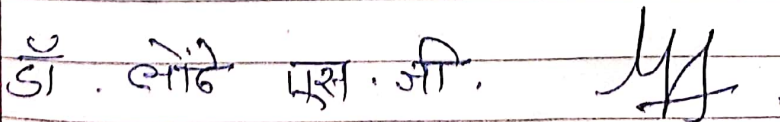 डॉ. लोंढे एस. जी.